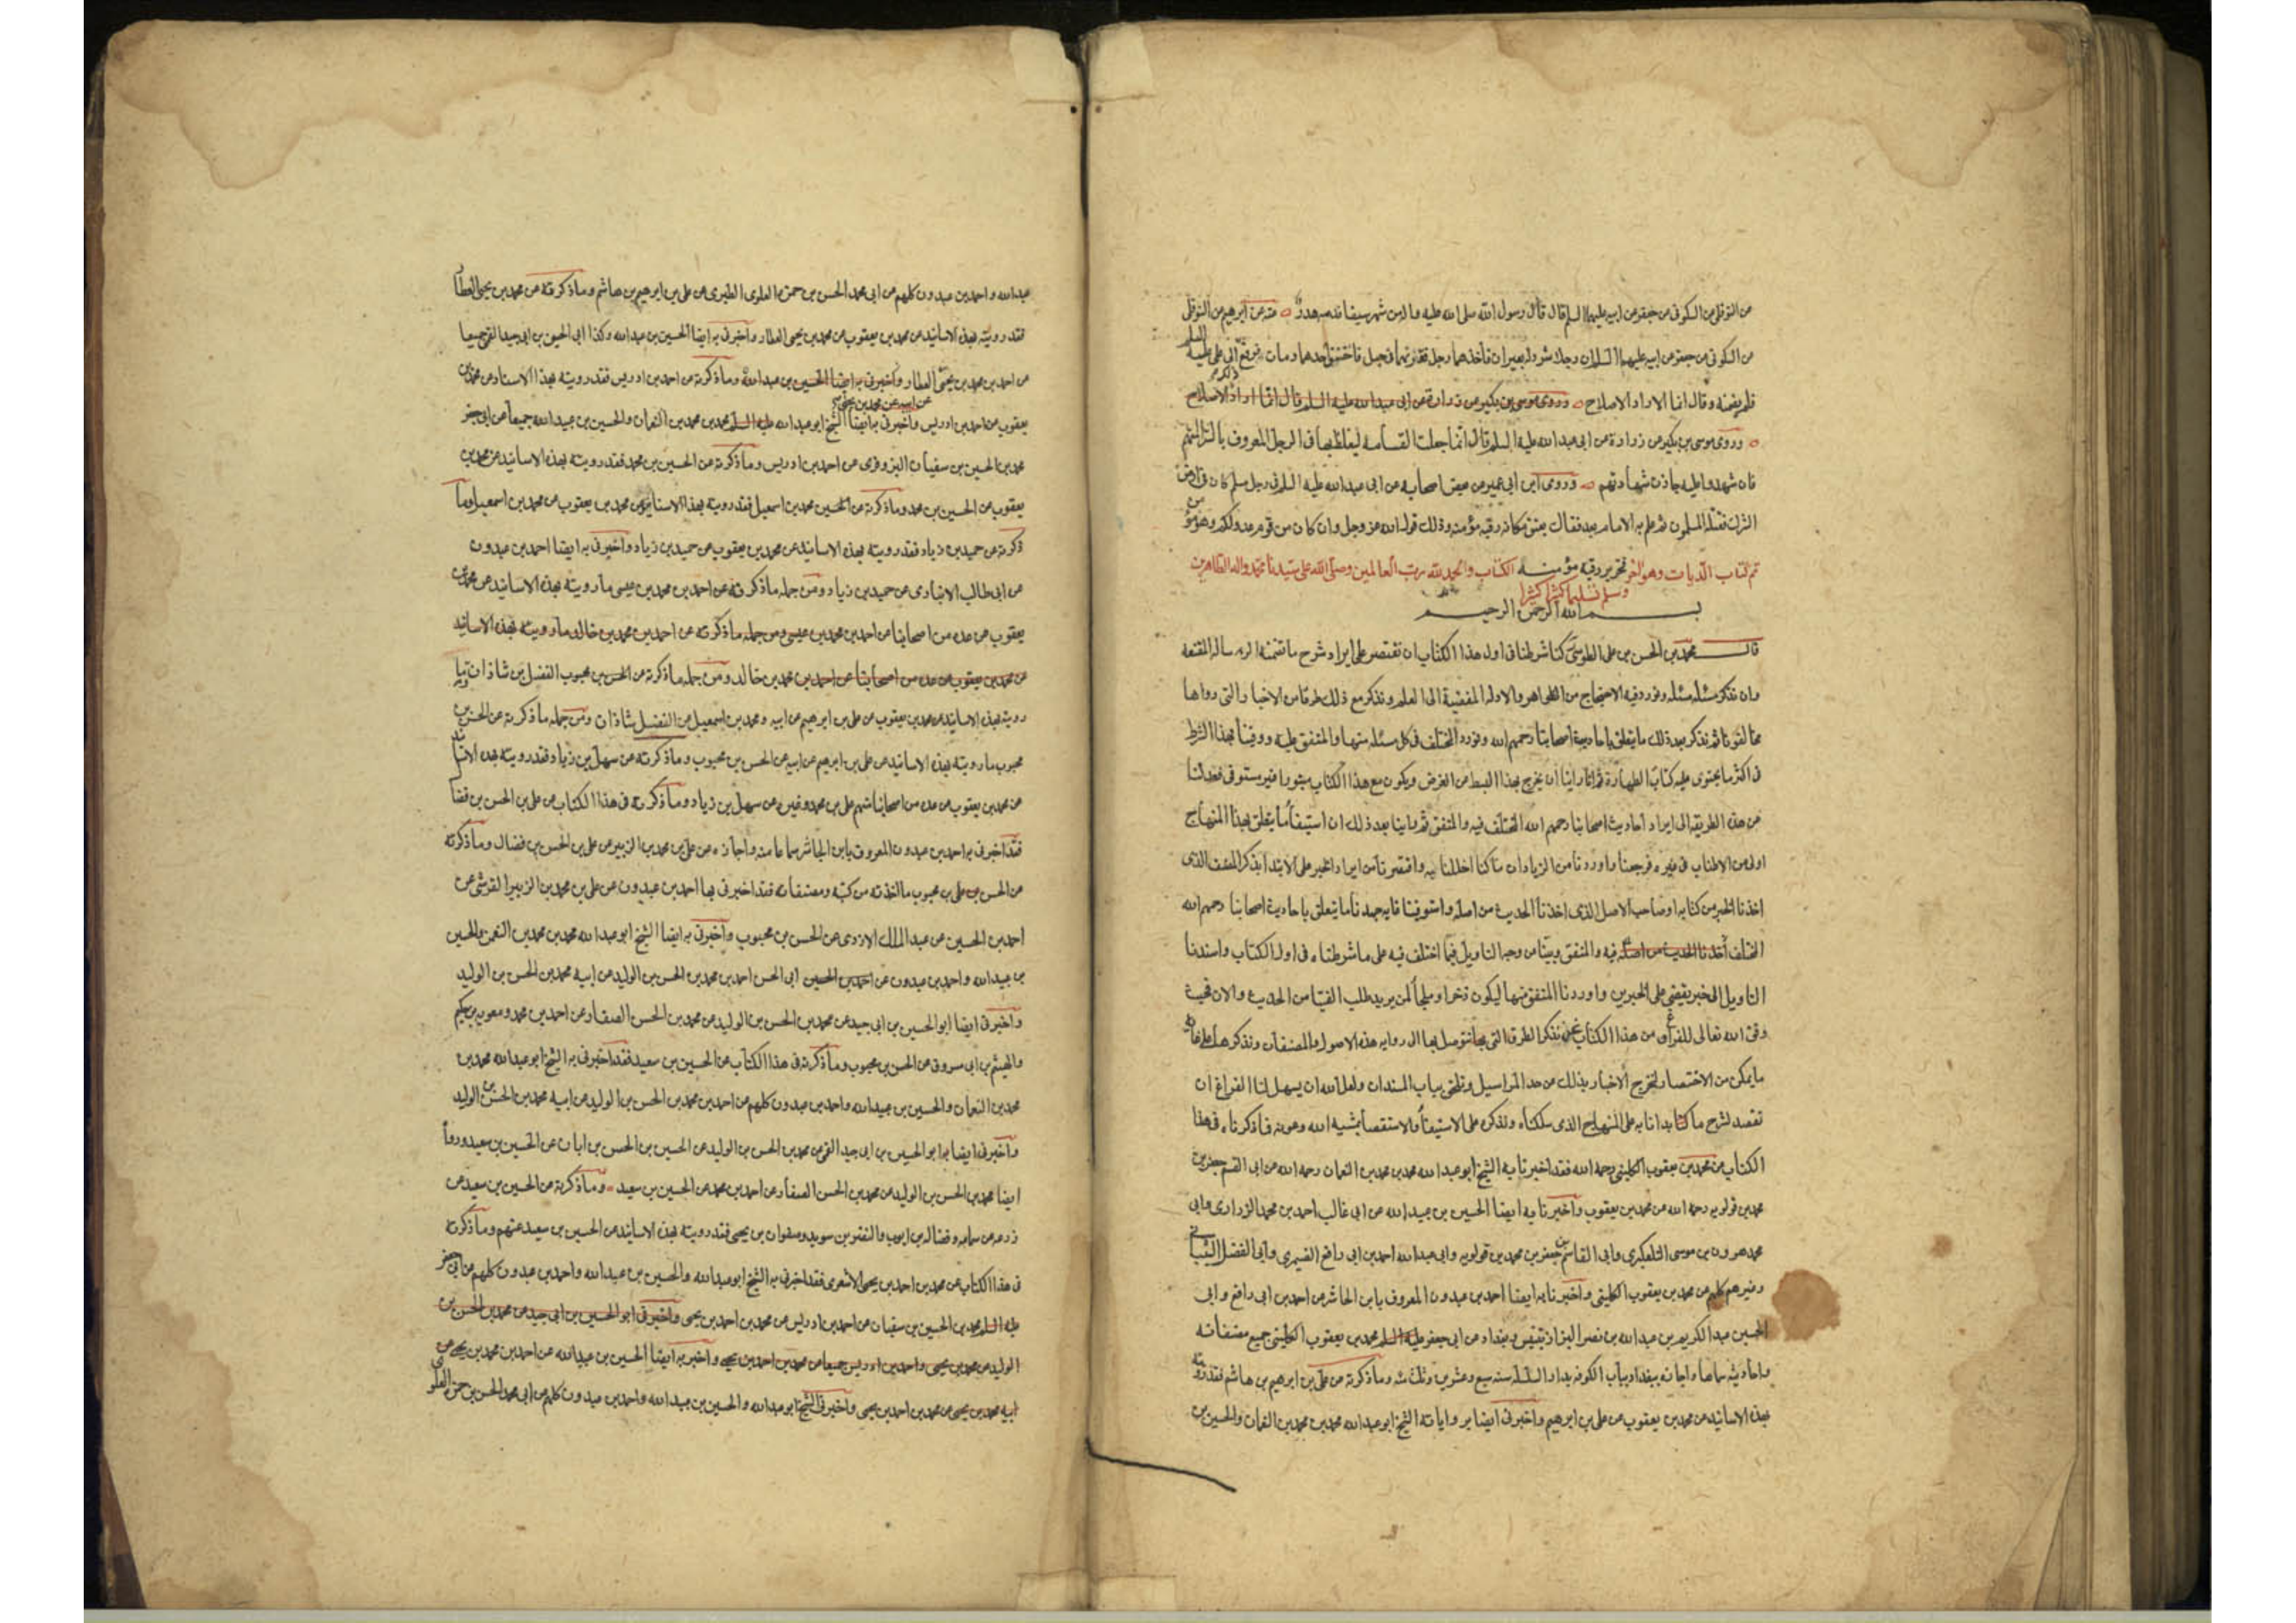 عن النوفلي عن السكوني عن جعفر عن ابيه عليهما السلم قال قال رسول الله صلى الله عليه واله من شهر سيفا فدمه هدر ه عنه عن ابرهيم عن النوفلي
عن السكوني عن جعفر عن ابيه عليهما السلم ان رجلا شرد له بعيران فاخذهما رجل فقرنهما في حبل فاختنق احدهما ومات فرفع الى علي عليه السلم
فلم يضمنه وقال انما اراد الاصلاح ه وروى موسى بن بكير عن زرارة عن ابي عبد الله عليه السلم قال انما اراد الاصلاح
ه وروى موسى بن بكير عن زرارة عن ابي عبد الله عليه السلم قال انما جعلت القسامه ليغلظ بها في الرجل المعروف بالشر المتهم
فان شهدوا عليه جازت شهادتهم ه وروى ابن ابي عمير عن بعض اصحابه عن ابي عبد الله عليه السلم في رجل مسلم كان في ارض
الشرك فقتله المسلمون ثم علم به الامام بعد فقال يعتق مكانه رقبه مؤمنه وذلك قول الله عز وجل وان كان من قوم عدو لكم وهو مؤمن
فتحرير رقبه مؤمنه تم كتاب الديات وهو اخر الكتاب والحمد لله رب العالمين وصلى الله على سيدنا محمد واله الطاهرين
وسلم تسليما كثيرا كثيرا
بسم الله الرحمن الرحيم
قال محمد بن الحسن بن علي الطوسي كنا شرطنا في اول هذا الكتاب ان نقتصر على ايراد شرح ما تضمنه الرساله المقنعه
وان نذكر مسئله مسئله ونورد فيه الاحتجاج من الظواهر والادله المفضية الى العلم ونذكر مع ذلك طرفا من الاخبار التي رواها
مخالفونا ثم نذكر بعد ذلك ما يتعلق باحاديث اصحابنا رحمهم الله ونورد المختلف في كل مسئله منها والمتفق عليه ووفينا بهذا الشرط
في اكثر ما يحتوى عليه كتاب الطهارة ثم انا راينا ان يخرج بهذا البسط من الغرض ويكون مع هذا الكتاب مبتورا غير مستوفى فعدلنا
عن هذه الطريقه الى ايراد احاديث اصحابنا رحمهم الله المختلف فيه والمتفق ثم راينا بعد ذلك ان استيفا ما يتعلق بهذا المنهاج
اولى من الاطناب في غيره فرجعنا واوردنا من الزيادات ما كنا اخللنا به واقتصرنا من ايراد الخبر على الابتدا بذكر المصنف الذى
اخذنا الخبر من كتابه او صاحب الاصل الذى اخذنا الحديث من اصله واستوفينا غايه جهدنا ما يتعلق باحاديث اصحابنا رحمهم الله
المختلف اخذنا الحديث من اصله فيه والمتفق وبينا من وجه التاويل فيما اختلف فيه على ما شرطناه في اول الكتاب واسندنا
التاويل الى خبر يقضى على الخبرين واوردنا المتفق منها ليكون ذخرا وملجأ لمن يريد طلب الفتيا من الحديث والان فحيث
وفق الله تعالى للفراغ من هذا الكتاب نحن نذكر الطرق التي بها نتوسل بها الى روايه هذه الاصول والمصنفات ونذكرها على غايه
ما يمكن من الاختصار لتخرج الاخبار بذلك عن حد المراسيل وتلحق بباب المسندات ولعل الله ان يسهل لنا الفراغ ان
نقصد لشرح ما كنا بدانا به على المنهاج الذى سلكناه ونذكره على الاستيفا والاستقصا بمشيه الله وعونه فما ذكرناه في هذا
الكتاب عن محمد بن يعقوب الكليني رحمه الله فقد اخبرنا به الشيخ ابو عبد الله محمد بن محمد بن النعمان رحمه الله عن ابي القسم جعفر بن
محمد بن قولويه رحمه الله عن محمد بن يعقوب واخبرنا به ايضا الحسين بن عبيد الله عن ابي غالب احمد بن محمد الزراري وابي
محمد هرون بن موسى التلعكبري وابي القاسم جعفر بن محمد بن قولويه وابي عبد الله احمد بن ابي رافع الصيمري وابي المفضل الشيباني
وغيرهم كلهم عن محمد بن يعقوب الكليني واخبرنا به ايضا احمد بن عبدون المعروف بابن الحاشر عن احمد بن ابي رافع وابي
الحسين عبد الكريم بن عبد الله بن نصر البزاز بتنيس وبغداد عن ابي جعفر عليه السلم محمد بن يعقوب الكليني جميع مصنفاته
واحاديثه سماعا واجازه ببغداد بباب الكوفه بدار السلسله سنه سبع وعشرين وثلث مئه وما ذكرته عن علي بن ابرهيم بن هاشم فقد رويته
بهذه الاسانيد عن محمد بن يعقوب عن علي بن ابرهيم واخبرني ايضا برواياته الشيخ ابو عبد الله محمد بن محمد بن النعمان والحسين بن
عبيد الله واحمد بن عبدون كلهم عن ابي محمد الحسن بن حمزه العلوى الطبرى عن علي بن ابرهيم بن هاشم وما ذكرته عن محمد بن يحيى العطار
فقد رويته بهذه الاسانيد عن محمد بن يعقوب عن محمد بن يحيى العطار واخبرني به ايضا الحسين بن عبد الله وكذا ابي الحسين بن ابي جيد القمي جميعا
عن احمد بن محمد بن يحيى العطار واخبرني به ايضا الحسين بن عبد الله وما ذكرته عن احمد بن ادريس فقد رويته بهذا الاسناد عن محمد بن
عن ابيه عن محمد بن يحيى
يعقوب عن احمد بن ادريس واخبرني به ايضا الشيخ ابو عبد الله عليه السلم محمد بن محمد بن النعمان والحسين بن عبيد الله جميعا عن ابي جعفر
محمد بن الحسين بن سفيان البزوفرى عن احمد بن ادريس وما ذكرته عن الحسين بن محمد فقد رويته بهذه الاسانيد عن محمد بن
يعقوب عن الحسين بن محمد وما ذكرته عن الحسين محمد بن اسمعيل فقد رويته بهذا الاسناد عن محمد بن يعقوب عن محمد بن اسمعيل وما
ذكرته عن حميد بن زياد فقد رويته بهذه الاسانيد عن محمد بن يعقوب عن حميد بن زياد واخبرني به ايضا احمد بن عبدون
عن ابي طالب الانبارى عن حميد بن زياد ومن جمله ما ذكرته عن احمد بن محمد بن عيسى ما رويته بهذه الاسانيد عن محمد بن
يعقوب عن عده من اصحابنا عن احمد بن محمد بن عيسى ومن جمله ما ذكرته عن احمد بن محمد بن خالد ما رويته بهذه الاسانيد
عن محمد بن يعقوب عن عده من اصحابنا عن احمد بن محمد بن خالد ومن جمله ما ذكرته عن الحسن بن محبوب الفضل بن شاذان ما
رويته بهذه الاسانيد عن محمد بن يعقوب عن علي بن ابرهيم عن ابيه ومحمد بن اسمعيل عن الفضل شاذان ومن جمله ما ذكرته عن الحسن بن
محبوب ما رويته بهذه الاسانيد عن علي بن ابرهيم عن ابيه عن الحسن بن محبوب وما ذكرته عن سهل بن زياد فقد رويته بهذه الاسانيد
عن محمد بن يعقوب عن عده من اصحابنا منهم علي بن محمد وغيره عن سهل بن زياد وما ذكرته في هذا الكتاب عن علي بن الحسن بن فضال
فقد اخبرني به احمد بن عبدون المعروف بابن الحاشر سماعا منه واجازه عن علي بن محمد بن الزبير عن علي بن الحسن بن فضال وما ذكرته
عن الحسن بن علي بن محبوب ما اخذته من كتبه ومصنفاته فقد اخبرني بها احمد بن عبدون عن علي بن محمد بن الزبير القرشي عن
احمد بن الحسين بن عبد الملك الازدى عن الحسن بن محبوب واخبرني به ايضا الشيخ ابو عبد الله محمد بن محمد بن النعمن والحسين
بن عبيد الله واحمد بن عبدون عن احمد بن الحسين ابي الحسن احمد بن محمد بن الحسن بن الوليد عن ابيه محمد بن الحسن بن الوليد
واخبرني ايضا ابو الحسين بن ابي جيد عن محمد بن الحسن بن الوليد عن محمد بن الحسن الصفار عن احمد بن محمد ومعويه بن حكيم
والهيثم بن ابي مسروق عن الحسن بن محبوب وما ذكرته في هذا الكتاب عن الحسين بن سعيد فقد اخبرني به الشيخ ابو عبد الله محمد بن
محمد بن النعمان والحسين بن عبيد الله واحمد بن عبدون كلهم عن احمد بن محمد بن الحسن بن الوليد عن ابيه محمد بن الحسن بن الوليد
واخبرني ايضا به ابو الحسين بن ابي جيد القمي عن محمد بن الحسن بن الوليد عن الحسين بن الحسن بن ابان عن الحسين بن سعيد ورواه
ايضا محمد بن الحسن بن الوليد عن محمد بن الحسن الصفار عن احمد بن محمد عن الحسين بن سعيد ه وما ذكرته عن الحسين بن سعيد عن
زرعه عن سماعه وفضاله بن ايوب والنضر بن سويد وصفوان بن يحيى فقد رويته بهذه الاسانيد عن الحسين بن سعيد عنهم وما ذكرته
في هذا الكتاب عن محمد بن احمد بن يحيى الاشعرى فقد اخبرني به الشيخ ابو عبد الله والحسين بن عبيد الله واحمد بن عبدون كلهم عن ابي جعفر
عليه السلم محمد بن الحسين بن سفيان عن احمد بن ادريس عن محمد بن احمد بن يحيى واخبرني ابو الحسين بن ابي جيد عن محمد بن الحسن بن
الوليد عن محمد بن يحيى واحمد بن ادريس جميعا عن محمد بن احمد بن يحيى واخبرني به ايضا الحسين بن عبيد الله عن احمد بن محمد بن يحيى عن
ابيه محمد بن يحيى عن محمد بن احمد بن يحيى واخبرني الشيخ ابو عبد الله والحسين بن عبيد الله واحمد بن عبدون كلهم عن ابي محمد الحسن بن حمزه العلوى